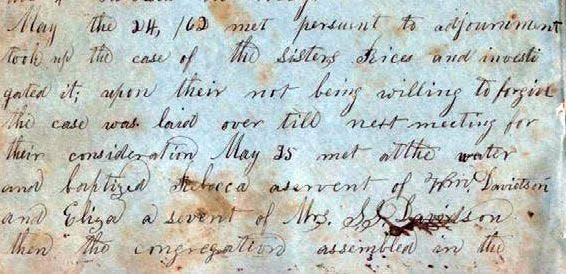 May the 24, /62 met persuant to adjournment
took up the case of the Sisters Rices and investi
gated it; upon their not being willing to forgive
the case was laid over till next meeting for
their consideration May 25 met at the water
and baptized Rebeca a servent of Wm. Davidson
and Eliza a sevent of Mrs. S J Davidson
then the congregation assembled in the